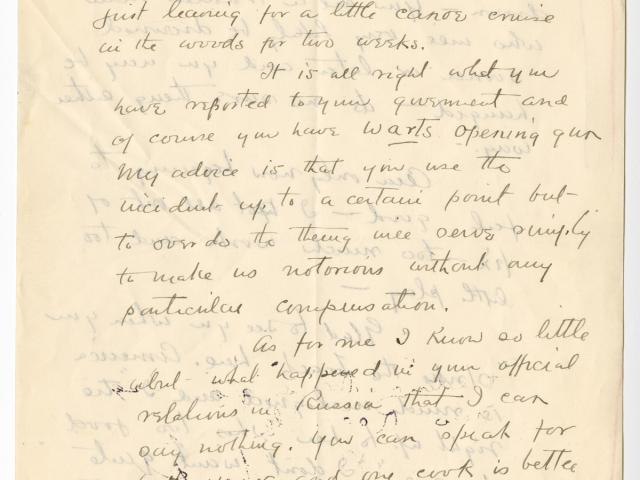 just leaving for a little canoe cruise
in the woods for two weeks.
It is all right what you
have reported to your government and
of course you have warts opening gun
My advice is that you use the
incident up to a certain point but
to over do the thing will serve simply
to make us notorious without any
particular compensation.
As for me I know so little
about what happened in your official
relations in Russia that I can
say nothing. You can speak for
and one cook is better